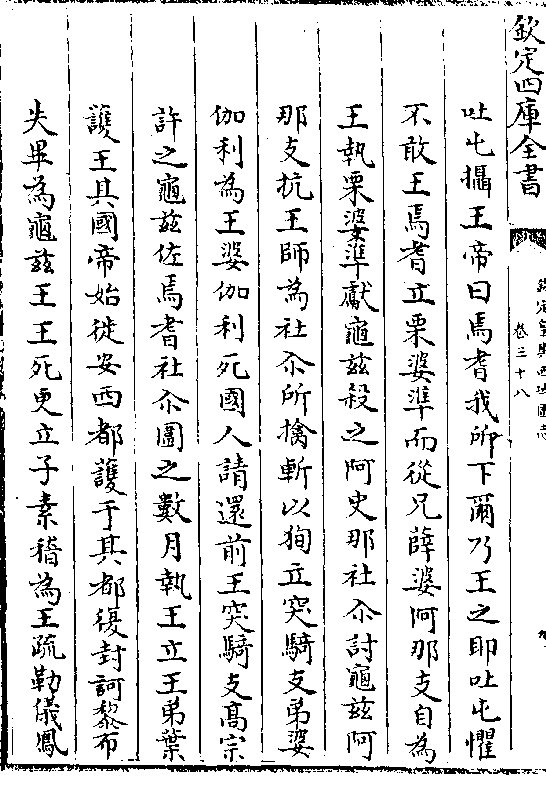 欽定四庫全書
欽定皇輿西域圖志
卷三十八
九
吐屯攝王帝曰焉耆我所下爾乃王之即吐屯懼
不敢王焉耆立栗婆準而從兄薛婆阿那支自為
王執栗婆準獻龜兹殺之阿史那社尒討龜兹阿
那支抗王師為社尒所擒斬以狥立突騎支弟婆
伽利為王婆伽利死國人請還前王突騎支髙宗
許之龜兹佐焉耆社尒圖之數月執王立王弟葉
護王其國帝始徙安西都護于其都復封訶黎布
失畢為龜兹王王死更立子素稽為王疏勒儀鳳